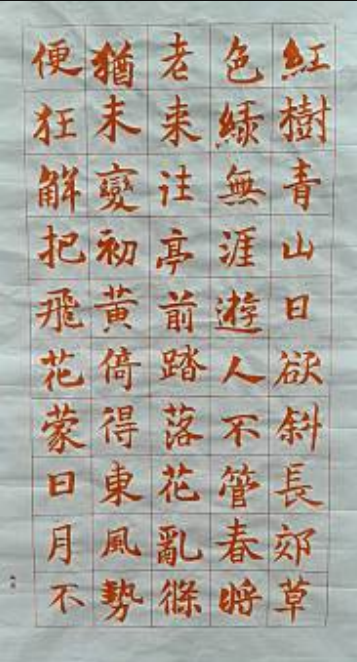 紅樹青山日欲斜長郊草
色綠無涯遊人不管春將
老来往亭前踏落花亂條
猶未變初黃倚得東風勢
便狂解把飛花蒙日月不